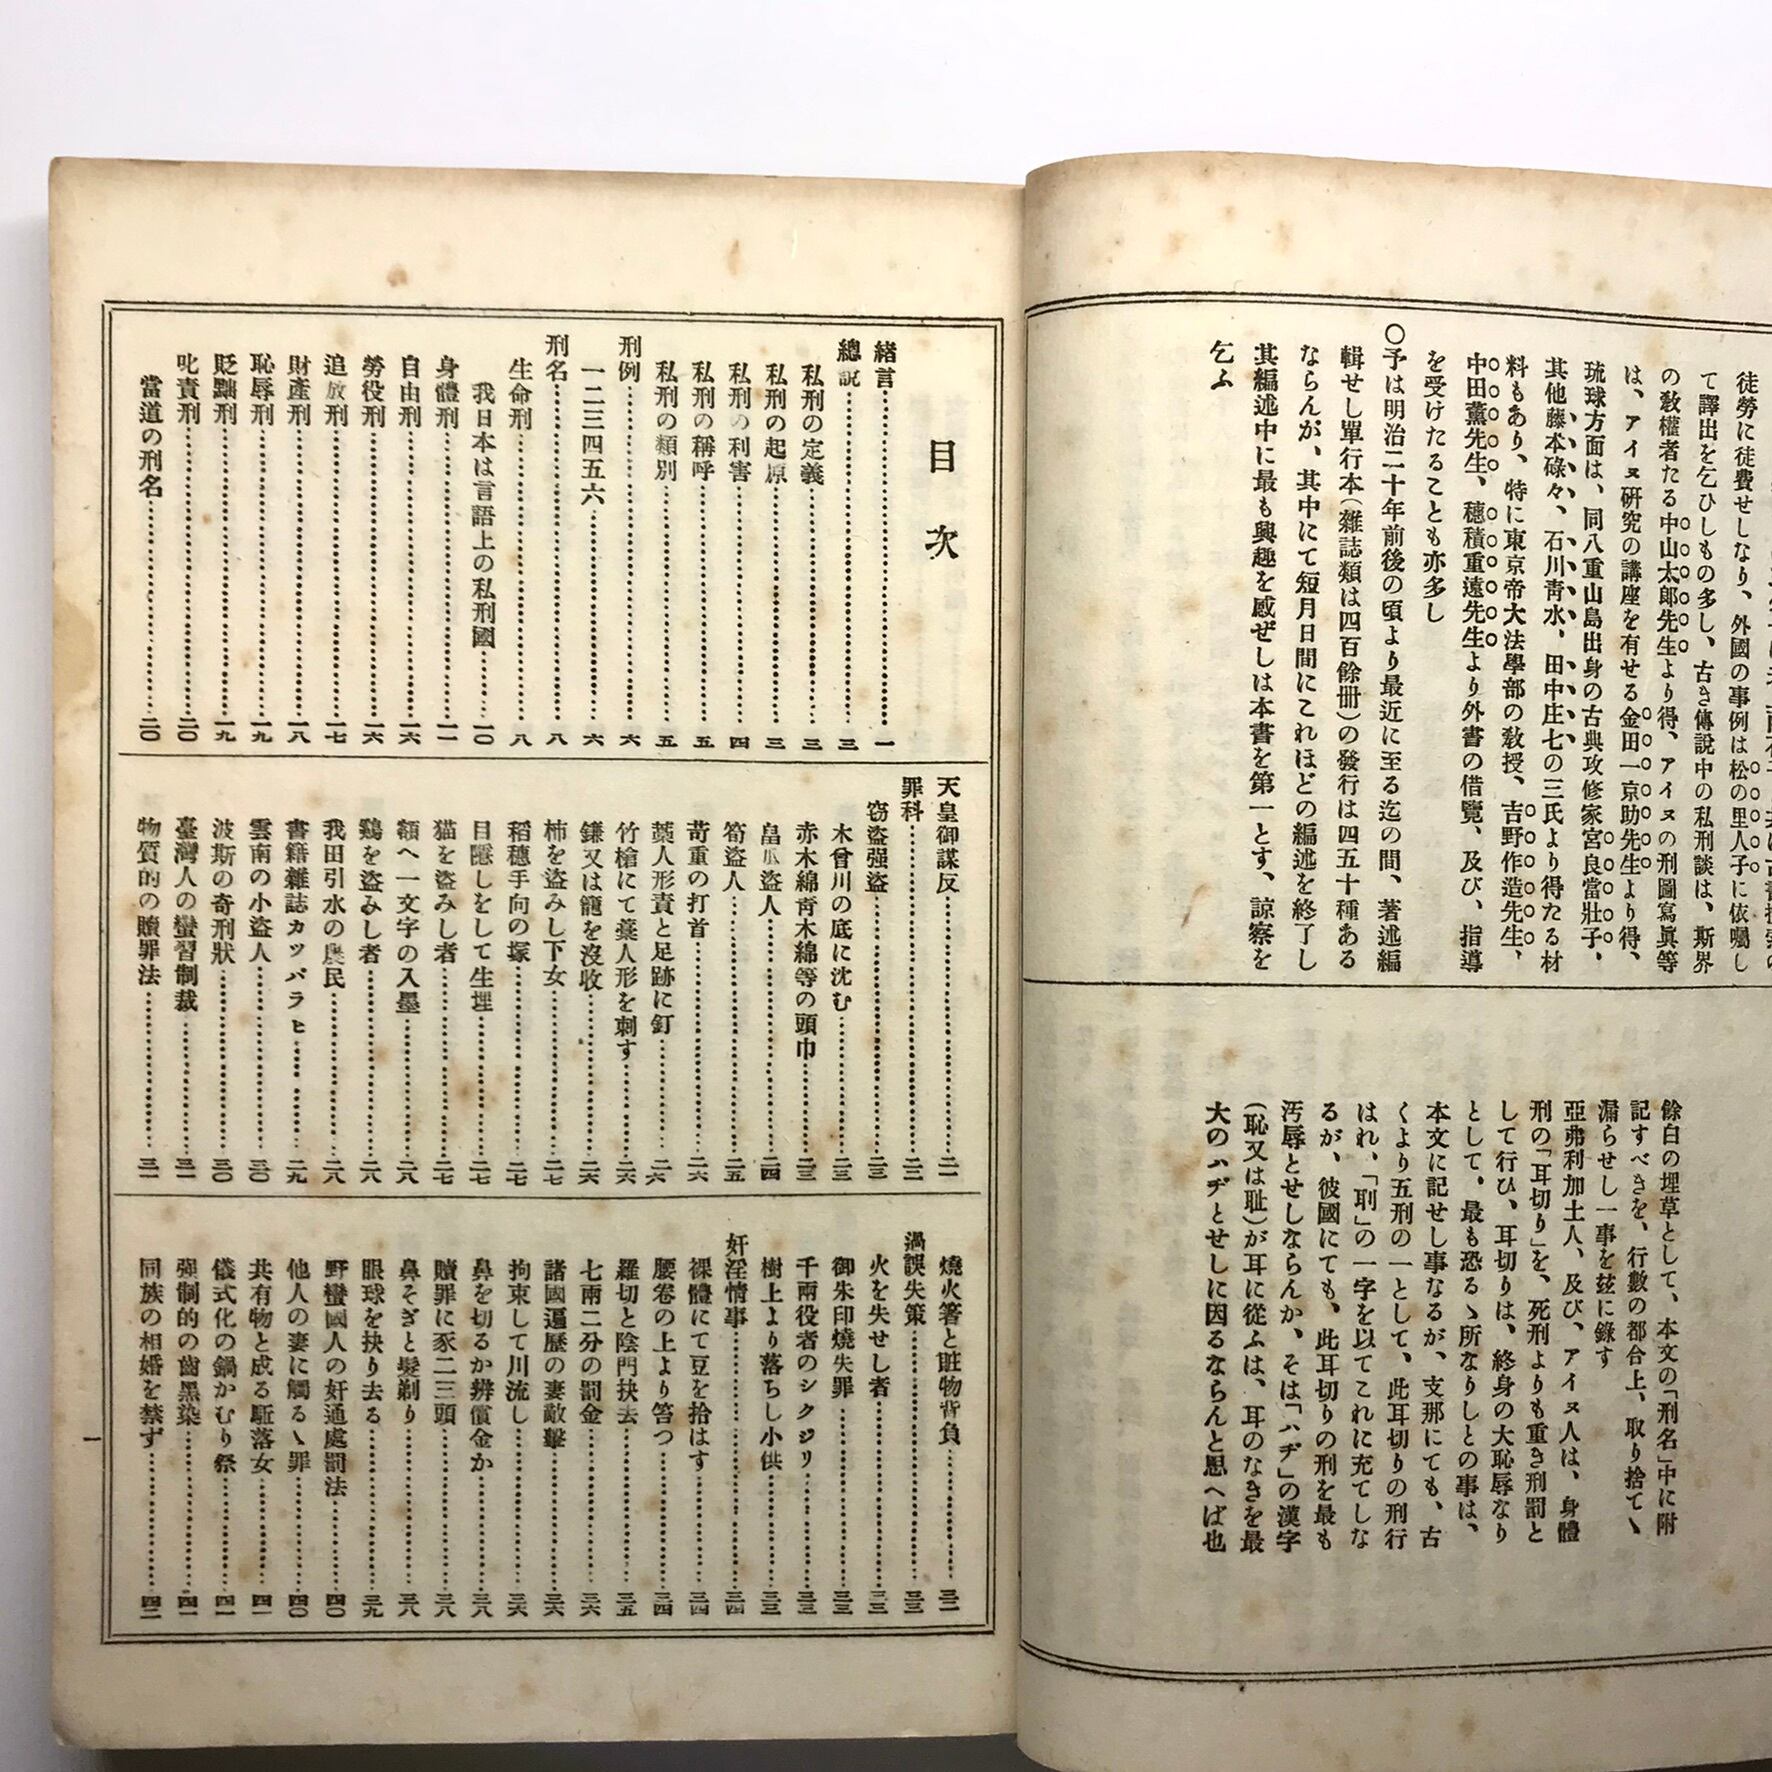 徒勞に徒費せしなり、外國の事例は松の里人子に依囑し
て譯出を乞ひしもの多し、古き傳說中の私刑談は、斯界
の敎權者たる中山太郎先生より得、アイヌの刑圖寫眞等
は、アイヌ硏究の講座を有せる金田一京助先生より得、
琉球方面は、同八重山島出身の古典攻修家宮良當壯子、
其他藤本碌々、石川靑水、田中庄七の三氏より得たる材
料もあり、特に東京帝大法學部の敎授、吉野作造先生、
中田薰先生、穗積重遠先生より外書の借覽、及び、指導
を受けたることも亦多し
〇予は明治二十年前後の頃より最近に至る迄の間、著述編
輯せし單行本(雜誌類は四百餘册)の發行は四五十種ある
ならんが、其中にて短月日間にこれほどの編述を終了し
其編述中に最も興趣を感ぜしは本書を第一とす、諒察を
乞ふ
餘白の埋草として、本文の「刑名」中に附
記すべきを、行數の都合上、取り捨て〵
漏らせし一事を玆に錄す
亞弗利加土人、及び、アイヌ人は、身體
刑の「耳切り」を、死刑よりも重き刑罰と
して行ひ、耳切りは、終身の大恥辱なり
として、最も恐るゝ所なりしとの事は、
本文に記せし事なるが、支那にても、古
くより五刑の一として、此耳切りの刑行
はれ、「刵」の一字を以てこれに充てしな
るが、彼國にても、此耳切りの刑を最も
汚辱とせしならんか、そは「ハヂ」の漢字
(恥又は耻)が耳に從ふは、耳のなきを最
大のハヂとせしに因るならんと思へば也
目次
緖言…………一
總說…………三
私刑の定義…………三
私刑の起原…………三
私刑の利害…………四
私刑の稱呼…………五
私刑の類別…………五
刑例…………六
一二三四五六…………六
刑名…………八
生命刑…………八
我日本は言語上の私刑國…………一〇
身體刑…………一一
自由刑…………一六
勞役刑…………一六
追放刑…………一七
財產刑…………一八
恥辱刑…………一九
貶黜刑…………一九
叱責刑…………二〇
當道の刑名…………二〇
天皇御謀反…………二一
罪科…………二二
窃盜强盜…………二三
木曾川の底に沈む…………二三
赤木綿靑木綿等の頭巾…………二三
畠瓜盜人…………二四
筍盜人…………二五
苛重の打首…………二六
藁人形責と足跡に釘…………二六
竹槍にて藁人形を刺す…………二六
鎌又は籠を沒收…………二六
柿を盜みし下女…………二七
稻穗手向の塚…………二七
目隱しをして生埋…………二七
猫を盜みし者…………二七
額へ一文字の入墨…………二八
鷄を盜みし者…………二八
我田引水の農民…………二八
書籍雜誌カッパラヒ…………二九
雲南の小盜人…………三〇
波斯の奇刑狀…………三〇
臺灣人の蠻習制裁…………三一
物質的の贖罪法…………三一
燒火箸と賍物背負…………三二
過誤失策…………三三
火を失せし者…………三三
御朱印燒失罪…………三三
千兩役者のシクジリ…………三三
樹上より落ちし小供…………三三
奸淫情事…………三四
裸體にて豆を拾はす…………三四
腰卷の上より笞つ…………三四
羅切と陰門抉去…………三五
七兩二分の罰金…………三六
諸國遍歷の妻敵擊…………三六
拘束して川流し…………三六
鼻を切るか辨償金か…………三八
贖罪に豕二三頭…………三八
鼻そぎと髮剃り…………三八
眼球を抉り去る…………三九
野蠻國人の奸通處罰法…………四〇
他人の妻に觸る〵罪…………四〇
共有物と成る墮落女…………四一
儀式化の鍋かむり祭…………四一
强制的の齒黑染…………四一
同族の相婚を禁ず…………四二
一